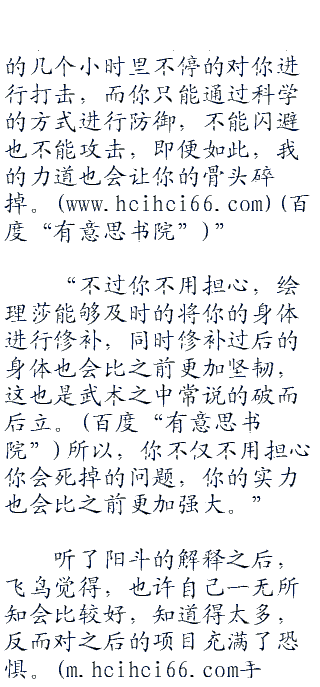 的几个小时里不停的对你进
行打击，而你只能通过科学
的方式进行防御，不能闪避
也不能攻击，即便如此，我
的力道也会让你的骨头碎
掉。(www.hcihci66.com)(百
度“有意思书院”)”
“不过你不用担心，绘
理莎能够及时的将你的身体
进行修补，同时修补过后的
身体也会比之前更加坚韧，
这也是武术之中常说的破而
后立。(百度“有意思书
院”)所以，你不仅不用担心
你会死掉的问题，你的实力
也会比之前更加强大。”
听了阳斗的解释之后，
飞鸟觉得，也许自己一无所
知会比较好，知道得太多，
反而对之后的项目充满了恐
惧。(m.hcihci66.com手